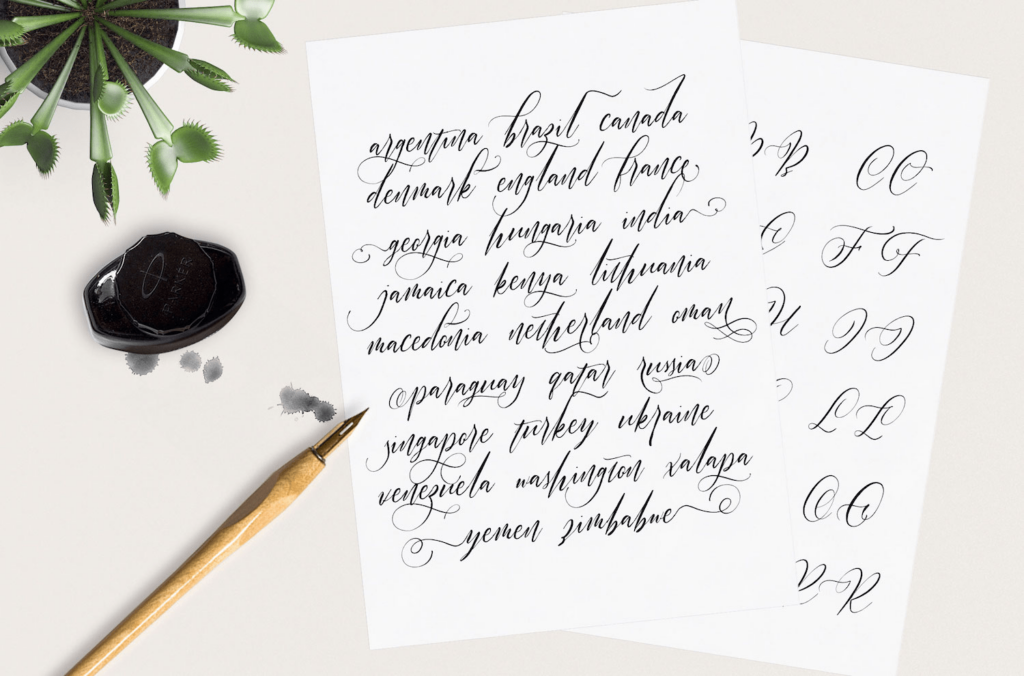 argentina brazil canada
denmark england france
georgia hungaria india
jamaica kenya lithuania
macedonia netherland oman
paraguay qatar russia
singapore turkey ukraine
venezuela washington xalapa
yemen zimbabwe
PARKER
B B C C
F F
L L
O O
R